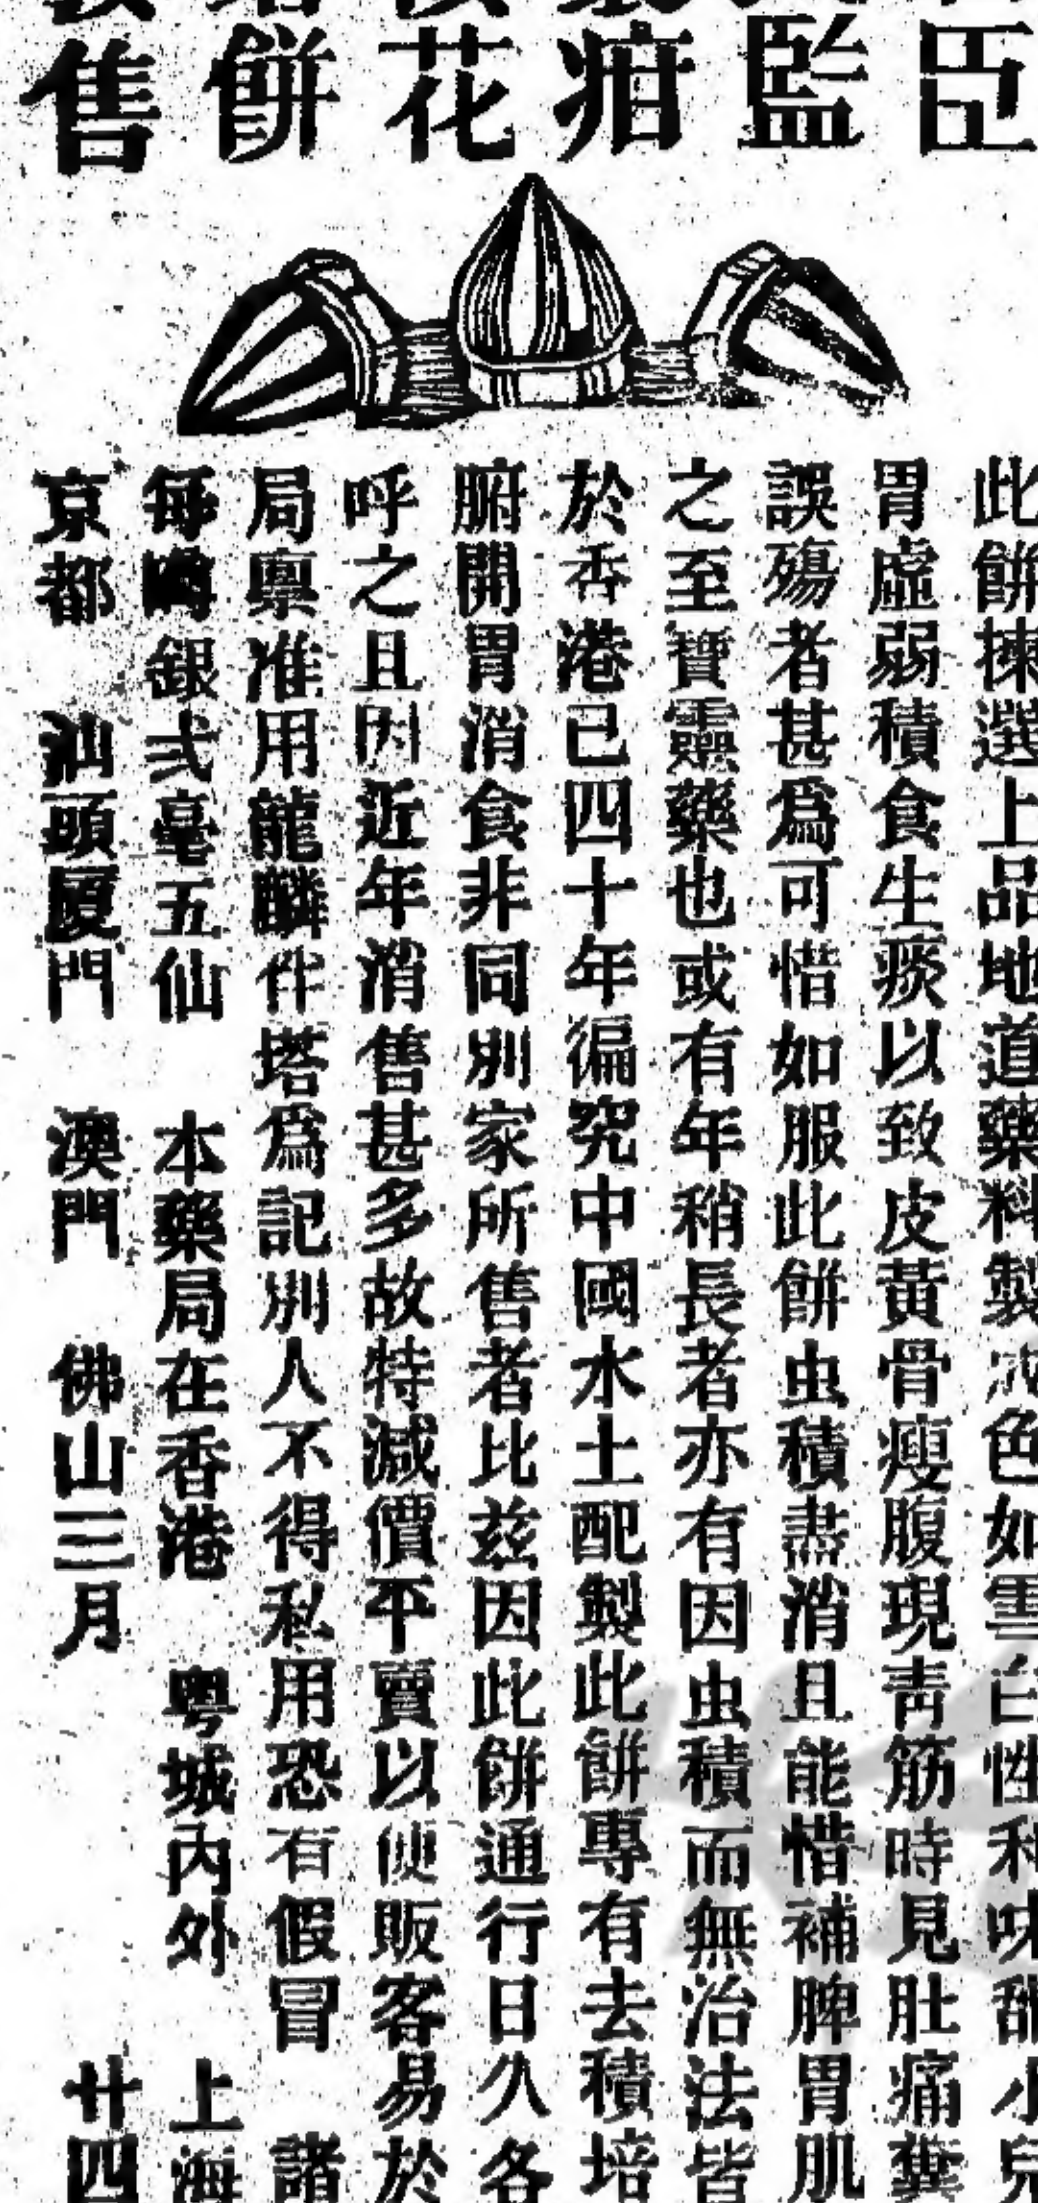 臣
監
疳
花
餅
售
此餅揀選上品地道藥料製成色如雪白性和味甜小兒
胃虛弱積食生痰以致皮黃骨瘦腹現青筋時見肚痛糞
誤殤者甚爲可惜如服此餅虫積盡消且能惜補脾胃肌
之至寶靈藥也或有年稍長者亦有因虫積而無治法皆
於香港已四十年徧究中國水土配製此餅專有去積培
腑開胃消食非同別家所售者比茲因此餅通行日久各
呼之且因近年消售甚多故特減價平賣以便販客易於
局稟准用龍麟件塔爲記別人不得私用恐有假冒 諸
每 銀弍毫五仙 本藥局在香港 粤城內外 上海
京都 汕頭厦門 澳門 佛山三月 廿四